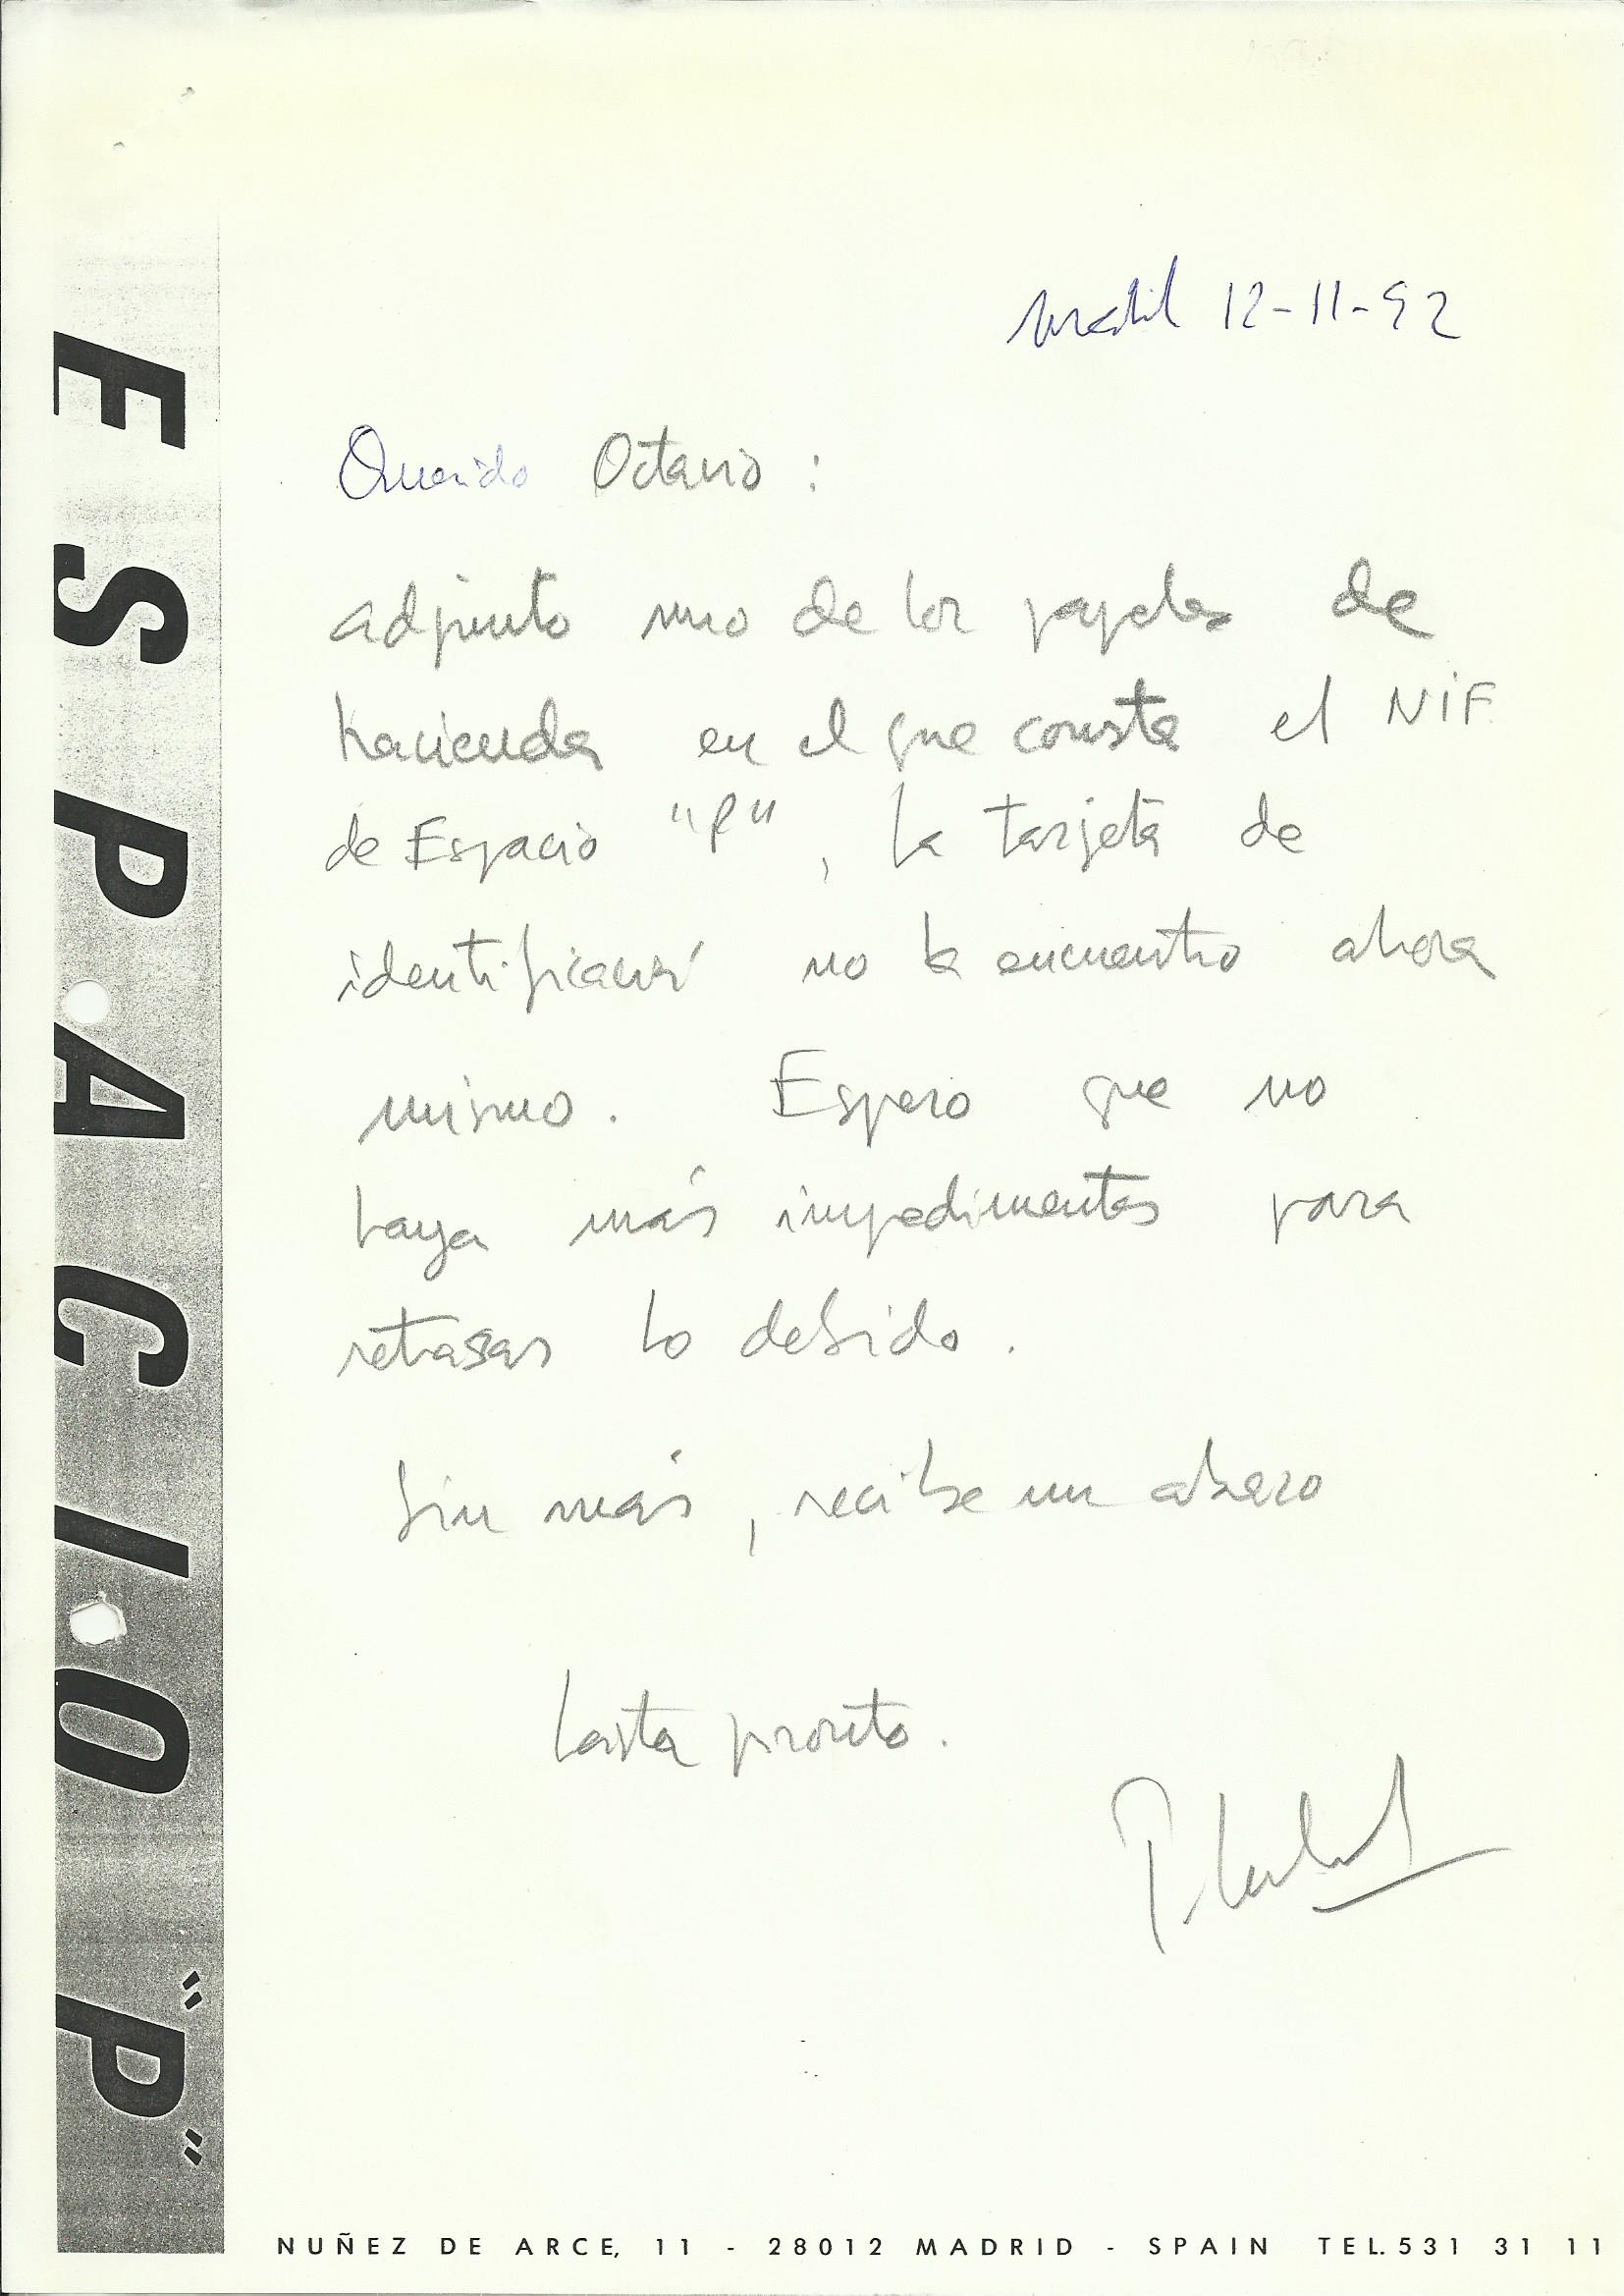 ESPACIO "P"
Madrid 12-11-92
Querido Octavio :
adjunto uno de los papeles de
hacienda en el que consta el NIF
de Espacio "P", la tarjeta de
identificación no la encuentro ahora
mismo. Espero que no
haya más impedimentos para
retrasar lo debido.
Sin más, recibe un abrazo
hasta pronto.
NUÑEZ DE ARCE, 11 - 28012 MADRID - SPAIN TEL. 531 31 11